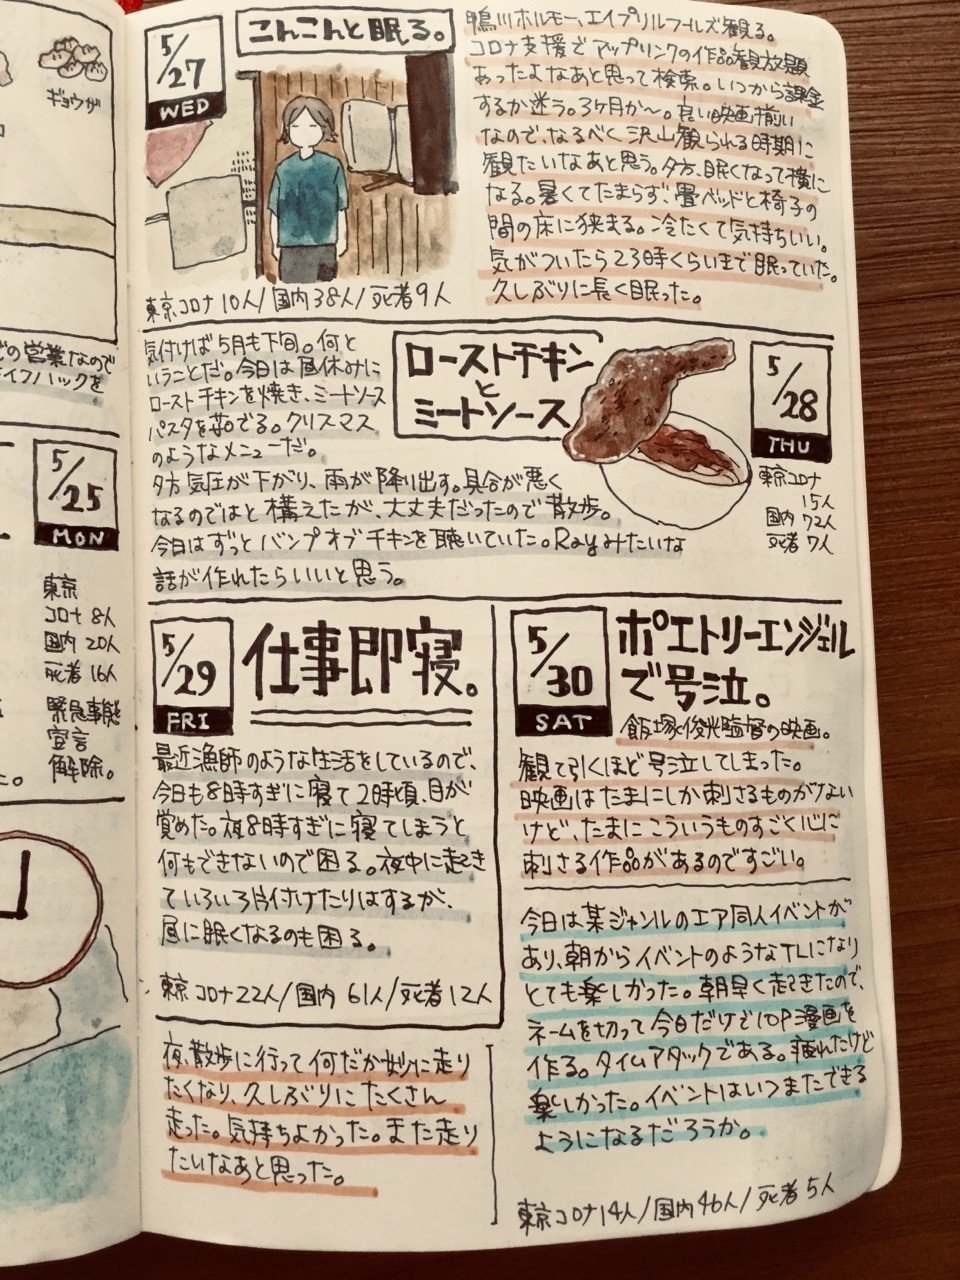 ギョウザ
どの営業なので
ライフハックを
5/25
MON
東京
コロナ 8人
国内 20人
死者 16人
緊急事態
宣言
解除。
5/27
WED
こんこんと眠る。
鴨川ホルモー、エイプリルフールズ観る。
コロナ支援でアップリンクの作品観放題
あったよなあと思って検索。いつから課金
するか迷う。3ヶ月か〜。良い映画揃い
なので、なるべく沢山観られる時期に
観たいなあと思う。夕方、眠くなって横に
なる。暑くてたまらず、畳ベッドと椅子の
間の床に狭まる。冷たくて気持ちいい。
気がついたら23時くらいまで眠っていた。
久しぶりに長く眠った。
東京コロナ10人/国内38人/死者9人
気付けば5月も下旬。何と
いうことだ。今日は昼休みに
ローストチキンを焼き、ミートソース
パスタを茹でる。クリスマス
のようなメニューだ。
夕方気圧が下がり、雨が降り出す。具合が悪く
なるのではと構えたが、大丈夫だったので散歩。
今日はずっとバンプオブチキンを聴いていた。Rayみたいな
話が作れたらいいと思う。
ローストチキン
と
ミートソース
5/28
THU
東京コロナ
15人
国内 72人
死者 7人
5/29
FRI
仕事即寝。
最近漁師のような生活をしているので、
今日も8時すぎに寝て2時頃、目が
覚めた。夜8時すぎに寝てしまうと
何もできないので困る。夜中に起き
ていろいろ片付けたりはするが、
昼に眠くなるのも困る。
東京コロナ22人/国内 61人/死者12人
夜、散歩に行って何だか妙に走り
たくなり、久しぶりにたくさん
走った。気持ちよかった。また走り
たいなあと思った。
5/30
SAT
ポエトリーエンジェル
で号泣。
飯塚俊光監督の映画。
観て引くほど号泣してしまった。
映画はたまにしか刺さるものがない
けど、たまにこういうものすごく心に
刺さる作品があるのですごい。
今日は某ジャンルのエア同人イベントが
あり、朝からイベントのようなTLになり
とても楽しかった。朝早く起きたので、
ネームを切って今日だけで10P漫画を
作る。タイムアタックである。疲れたけど
楽しかった。イベントはいつまたできる
ようになるだろうか。
東京コロナ14人/国内46人/死者5人